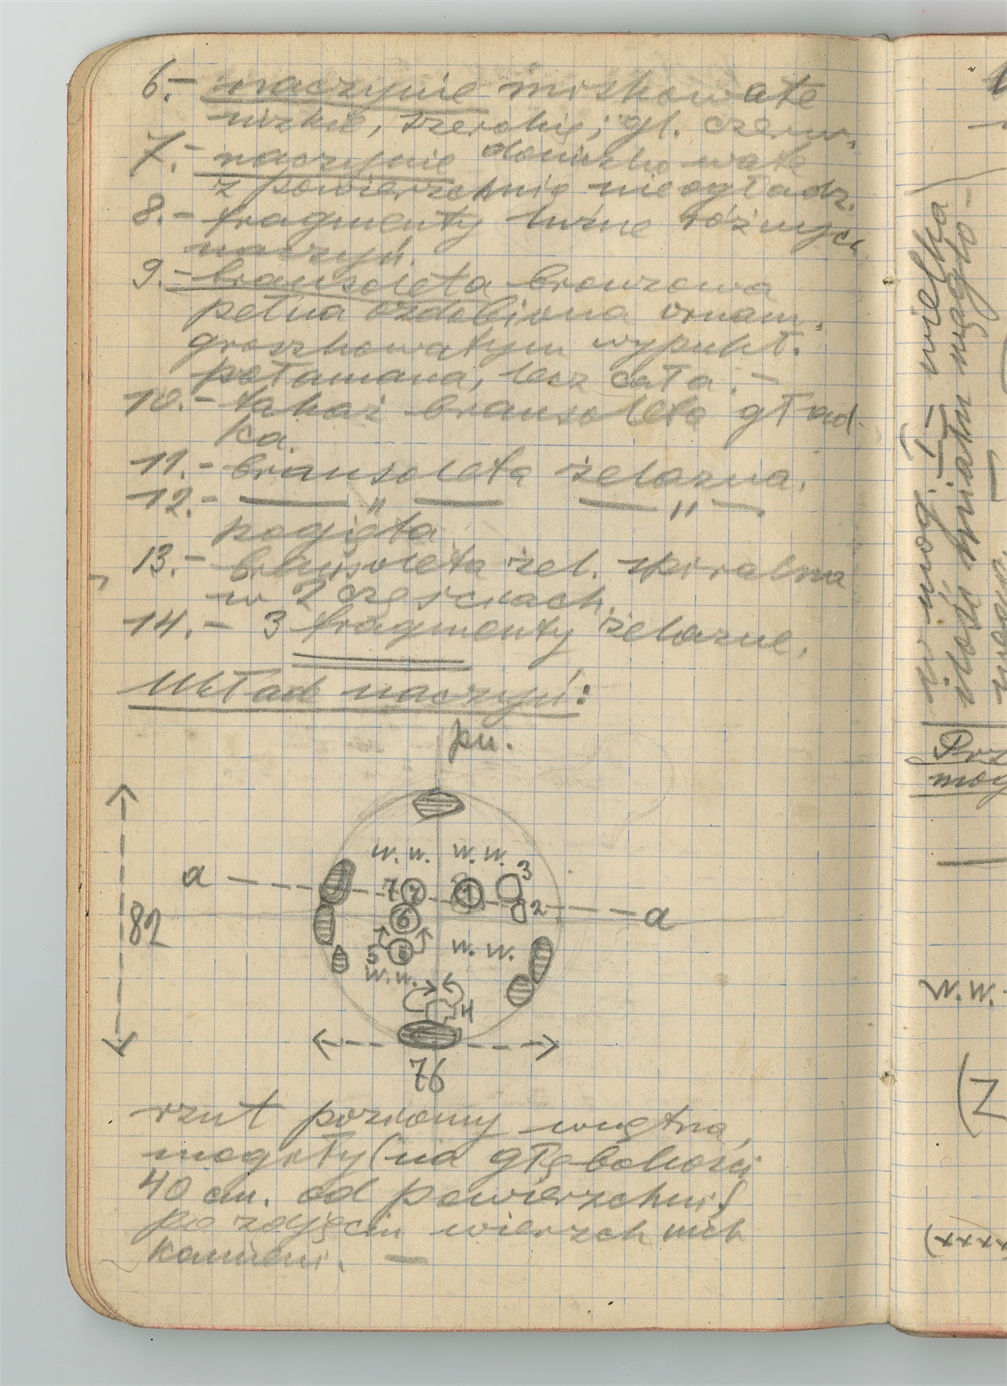 6.- naczynie miskowate
nizkie, szerokie; gł. czerw.
7.- naczynie doniczkowate
z powierzchnią nieogładz.
8.- fragmenty luźne różnych
naczyń.
9.- bransoleta bronzowa
pełna ozdobiona ornam.
groszkowatym wypukł.
połamana, lecz cała.-
10.- takaż bransoleta gład-
ka.
11.- bransoleta żelazna.
12.- — " — — " —
pogięta
13.- bransoleta żel. spiralna
w 2 częściach.
14.- 3 fragmenty żelazne.
Układ naczyń:
pn.
w.w. w.w.
a 7 7 1 3
2 a
82 6
5 5 w.w.
w.w.
4
76
rzut poziomy wnętrza
mogiły (na głębokości
40 cm. od powierzchni)
po zdjęciu wierzchnich
kamieni. —
w mog. I — wielka
ilość miału węglo-
wego.
w.w.